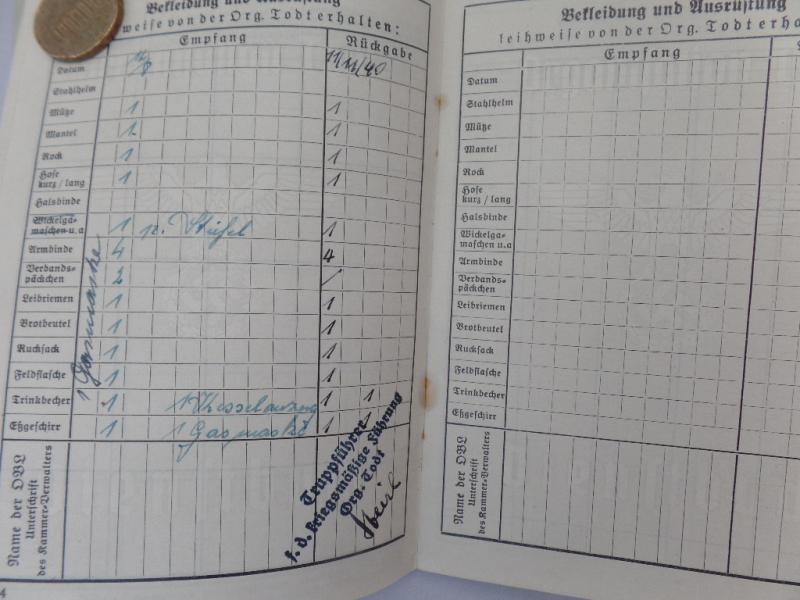 Bekleidung und Ausrüstung
weise von der Org. Todt erhalten:
Empfang Rückgabe
Datum
Stahlhelm
Mütze 1 1
Mantel 1 1
Rock 1 1
Hose
kurz / lang 1 1
Halsbinde
Wickelga-
maschen u.a 1 p. Stiefel 1
Armbinde 4 4
Verbands-
päckchen 2
Leibriemen 1 1
Brotbeutel 1 1
Rucksack 1 1
Feldflasche 1 1
Trinkbecher 1 1 1
Eßgeschirr 1 1 Gasmaske 1 1
1 Gasmaske
Name der OBL
Unterschrift
des Kammer-Verwalters
Truppführer
f. d. kriegsmäßige Führung
Org. Todt
4
Bekleidung und Ausrüstung
leihweise von der Org. Todt erha
Empfang
Datum
Stahlhelm
Mütze
Mantel
Rock
Hose
kurz / lang
Halsbinde
Wickelga-
maschen u.a
Armbinde
Verbands-
päckchen
Leibriemen
Brotbeutel
Rucksack
Feldflasche
Trinkbecher
Eßgeschirr
Name der OBL
Unterschrift
des Kammer-Verwalters